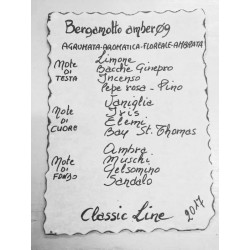 Bergamotto amber09
AGRUMATA-AROMATICA-FLOREALE-AMBRATA
Note DI TESTA
Limone
Bacche Ginepro
Incenso
Pepe rosa - Pino
Note DI CUORE
Vaniglia
Iris
Elemi
Bay St. Thomas
Note DI FONDO
Ambra
Muschi
Gelsomino
Sandalo
Classic Line
2017